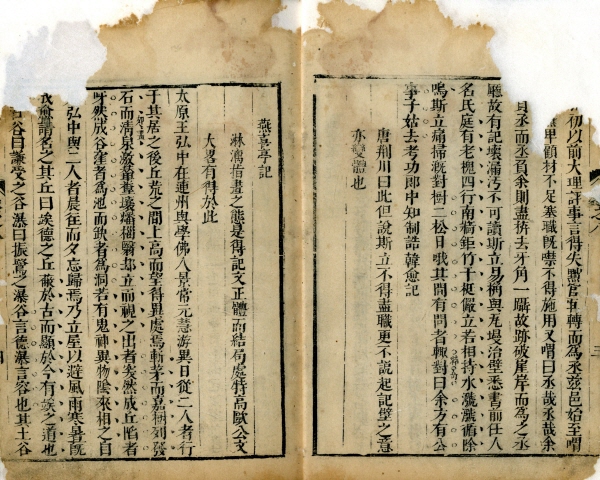 初以前大理評事言得失黜官再轉而為丞茲邑始至喟
無卑顧材不足塞職既噤不得施用又喟曰丞哉丞哉余
負丞而丞負余則盡枿去牙角一躡故跡破崖岸而為之丞
廳故有記壞漏汚不可讀斯立易桷與瓦墁治壁悉書前任人
名氏庭有老槐四行南墻鉅竹千梃儼立若相持水㶁㶁循除
鳴斯立痛掃溉對樹二松日哦其間有問者輒對曰余方有公
事子姑去考功郎中知制誥韓愈記
唐荊川曰此但說斯立不得盡職更不說起記壁之意
亦變體也
燕喜亭記
淋漓指畫之態是得記文正體而結局處特高歐公文
大畧有得於此
太原王弘中在連州與學佛人景常元慧游異日從二人者行
于其居之後丘荒之間上高而望得異處焉斬茅而嘉樹列發
石而清泉激輦糞壤燔椔翳却立而視之出者突然成丘陷者
呀然成谷窪者為池而缺者為洞若有鬼神異物陰來相之自
弘中與二人者晨往而夕忘歸焉乃立屋以避風雨寒暑既
成愈請名之其丘曰竢德之丘蔽於古而顯於今有竢之道也
石谷曰謙受之谷瀑曰振鷺之瀑谷言德瀑言容也其土谷